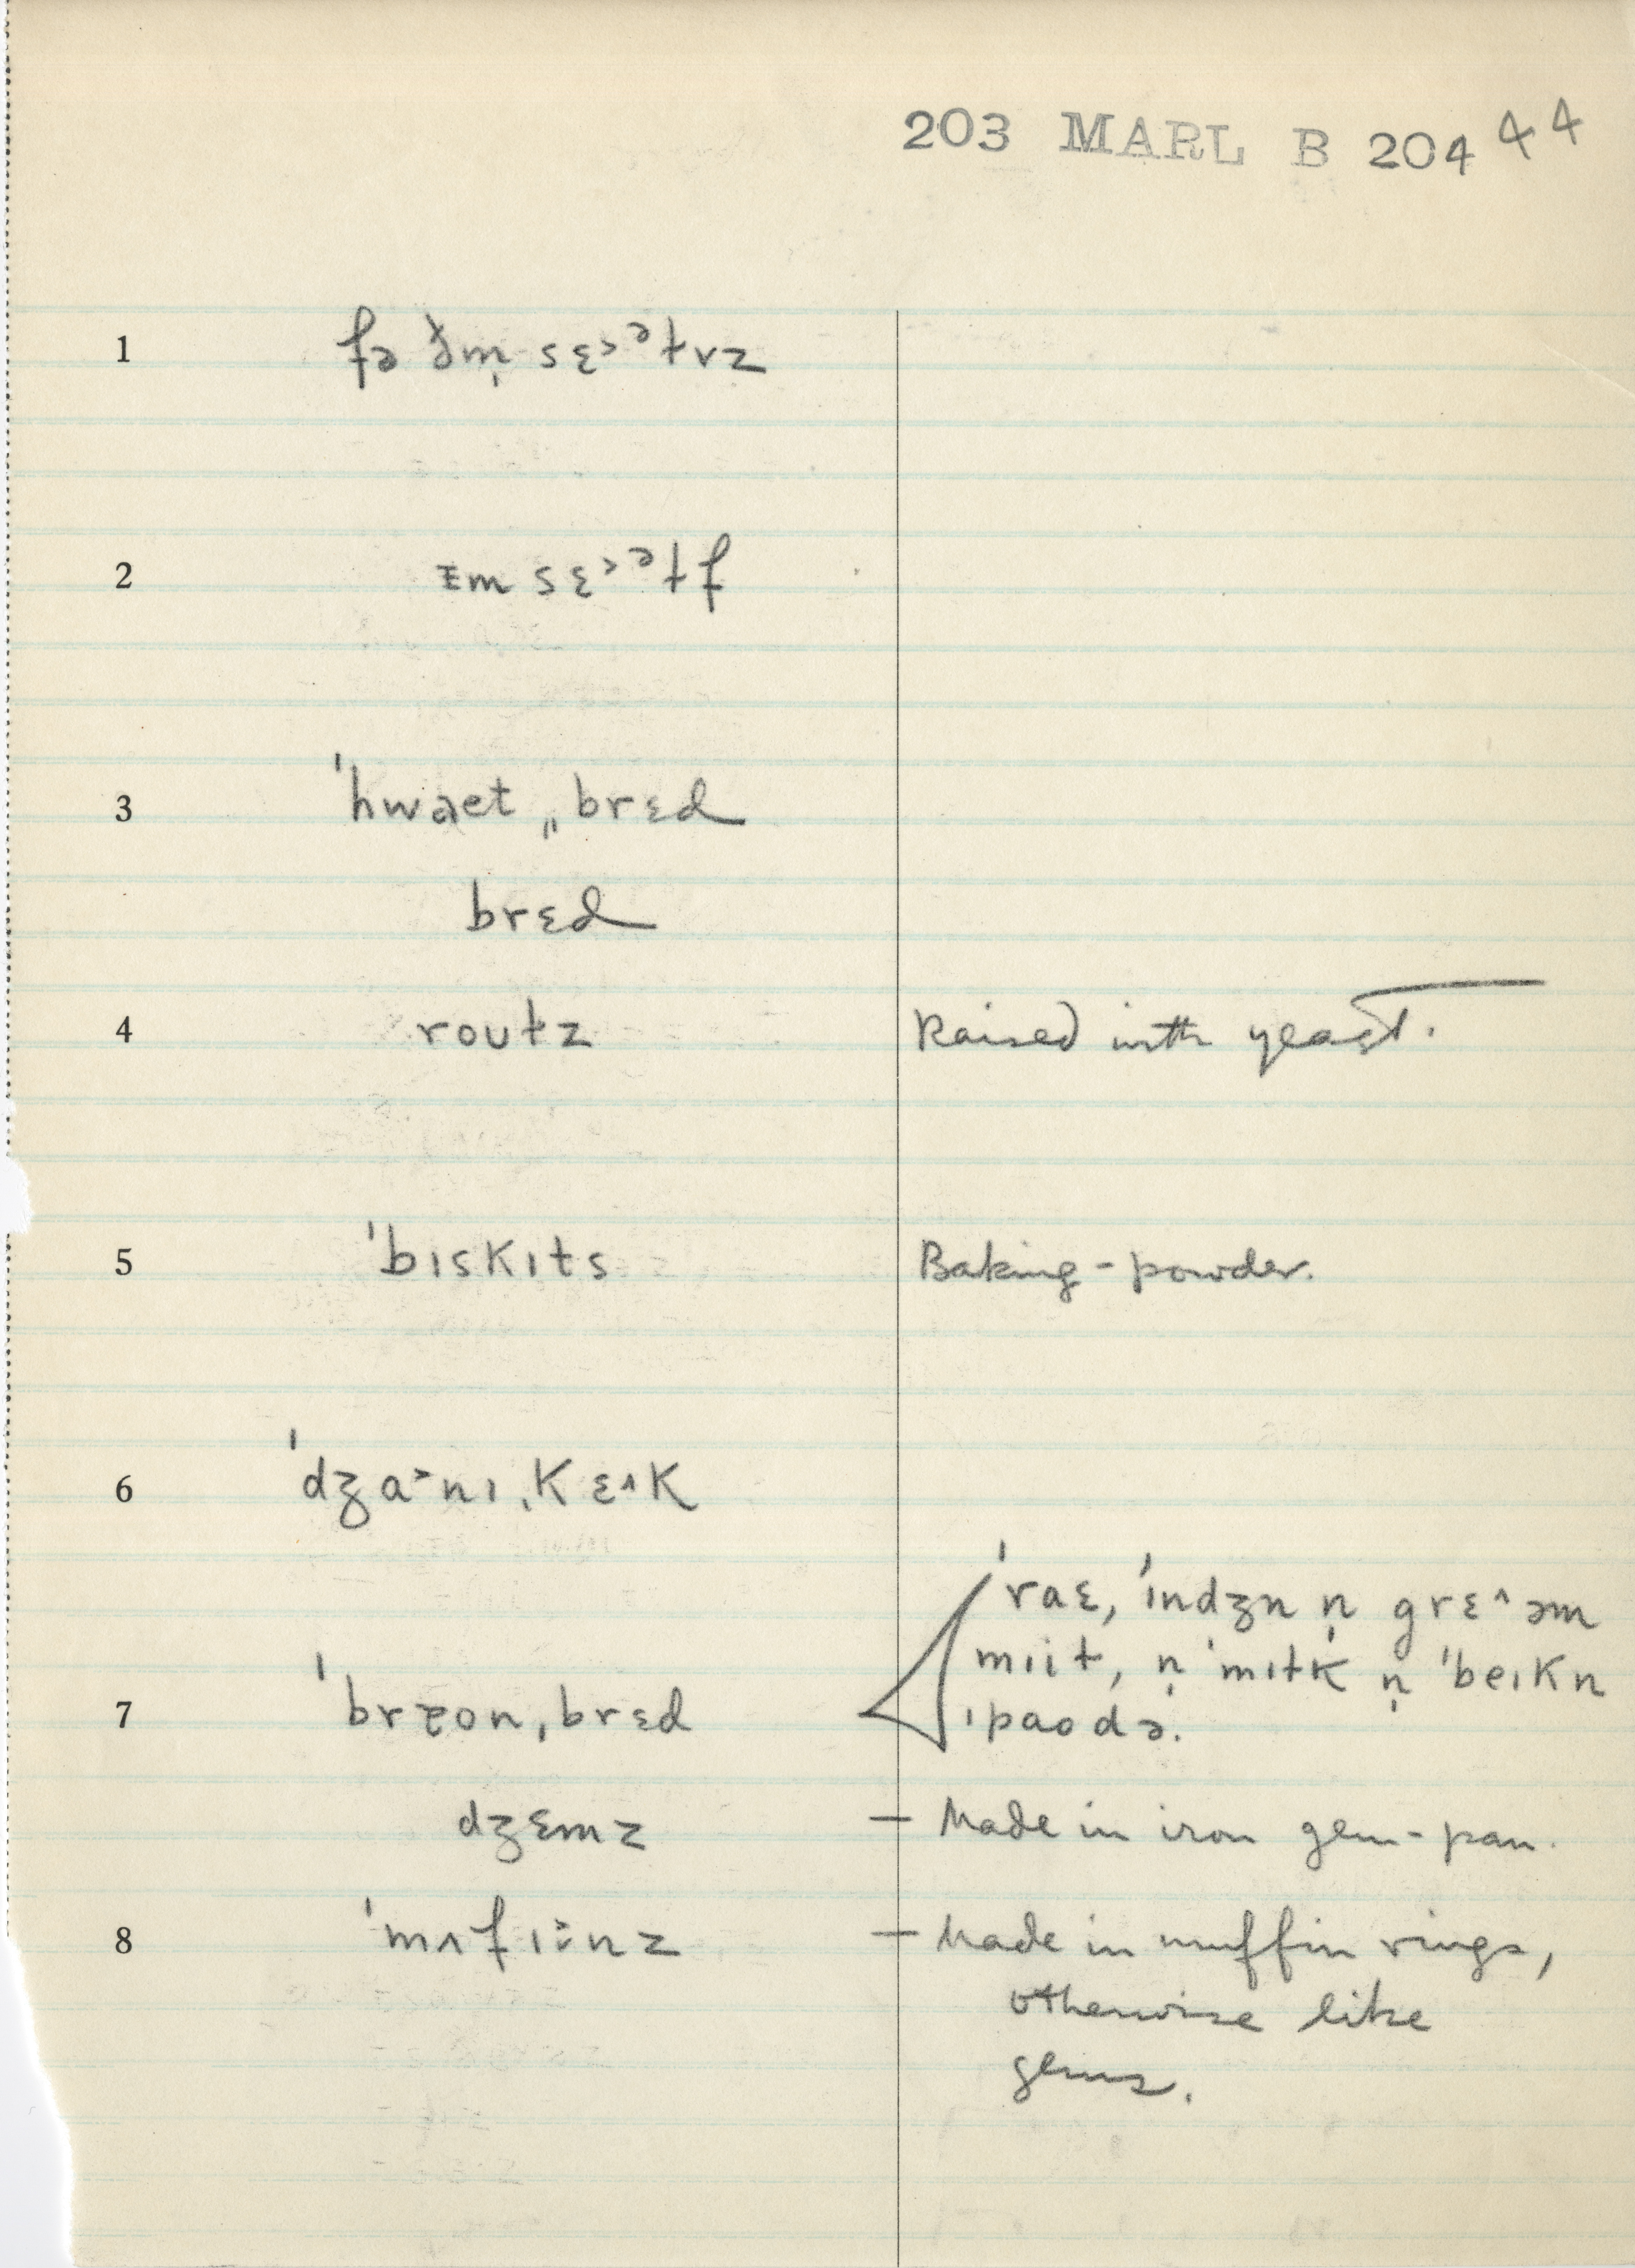 203 MARL B 204 44
1 fə ðm̩ sɛ˃ᵊɫvz
2 ᵻm sɛ˃ᵊɫf
3 ˈhwaet ˌˌbrɛd
brɛd
4 roʊɫz Raised with yeast.
5 ˈbɪskɪts Baking-powder.
6 ˈdʒa˃nɪˌkɛ^k
ˈraɛ, ˈɪndʒn n̩ grɛ^əm
mɪiɫ, n̩ ˈmɪɫk n̩ ˈbeɪkn
7 ˈbrɐon ˌbrɛd ˌpaodə.
dʒɛmz — Made in iron gem-pan.
8 ˈmʌfɪnz — Made in muffin rings,
otherwise like
gems.